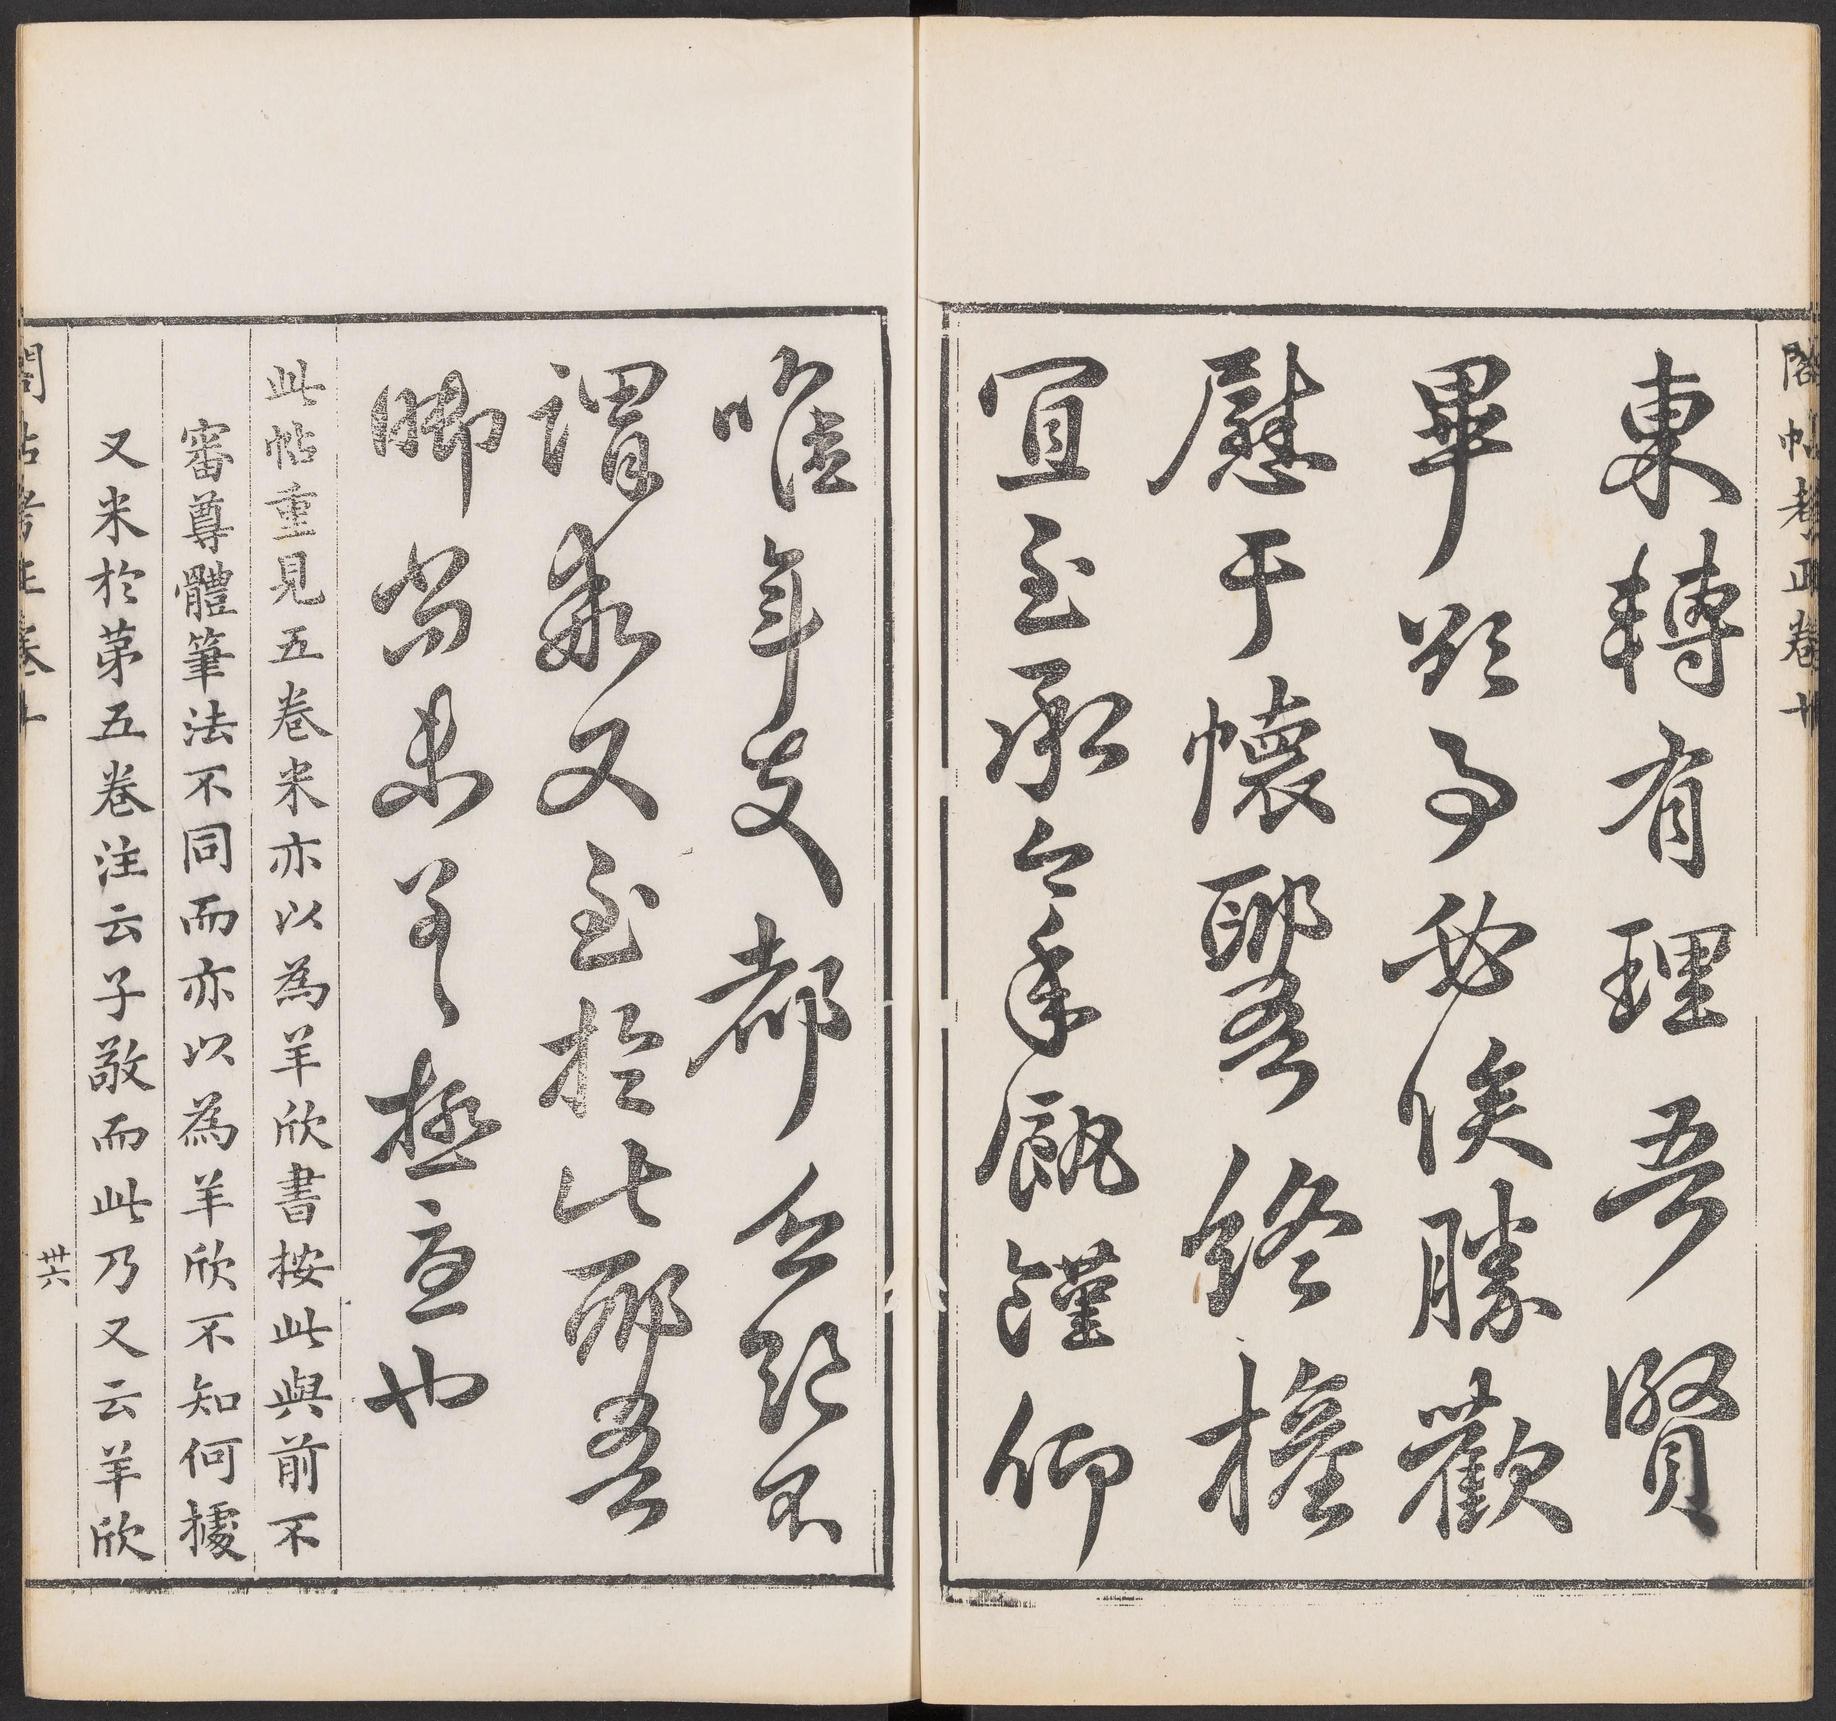 閣帖考正卷十
東轉有理吾賢
畢欲事必俟勝歡
慰于懷耶吾終權
宜至承今年飢饉仰
唯年支都乏絶不
謂又至於此耶吾
脚尚未差極憂也
此帖重見五卷米亦以為羊欣書按此與前不
審尊體筆法不同而亦以為羊欣不知何據
又米於第五卷注云子敬而此乃又云羊欣
閣帖考正卷十
卅六